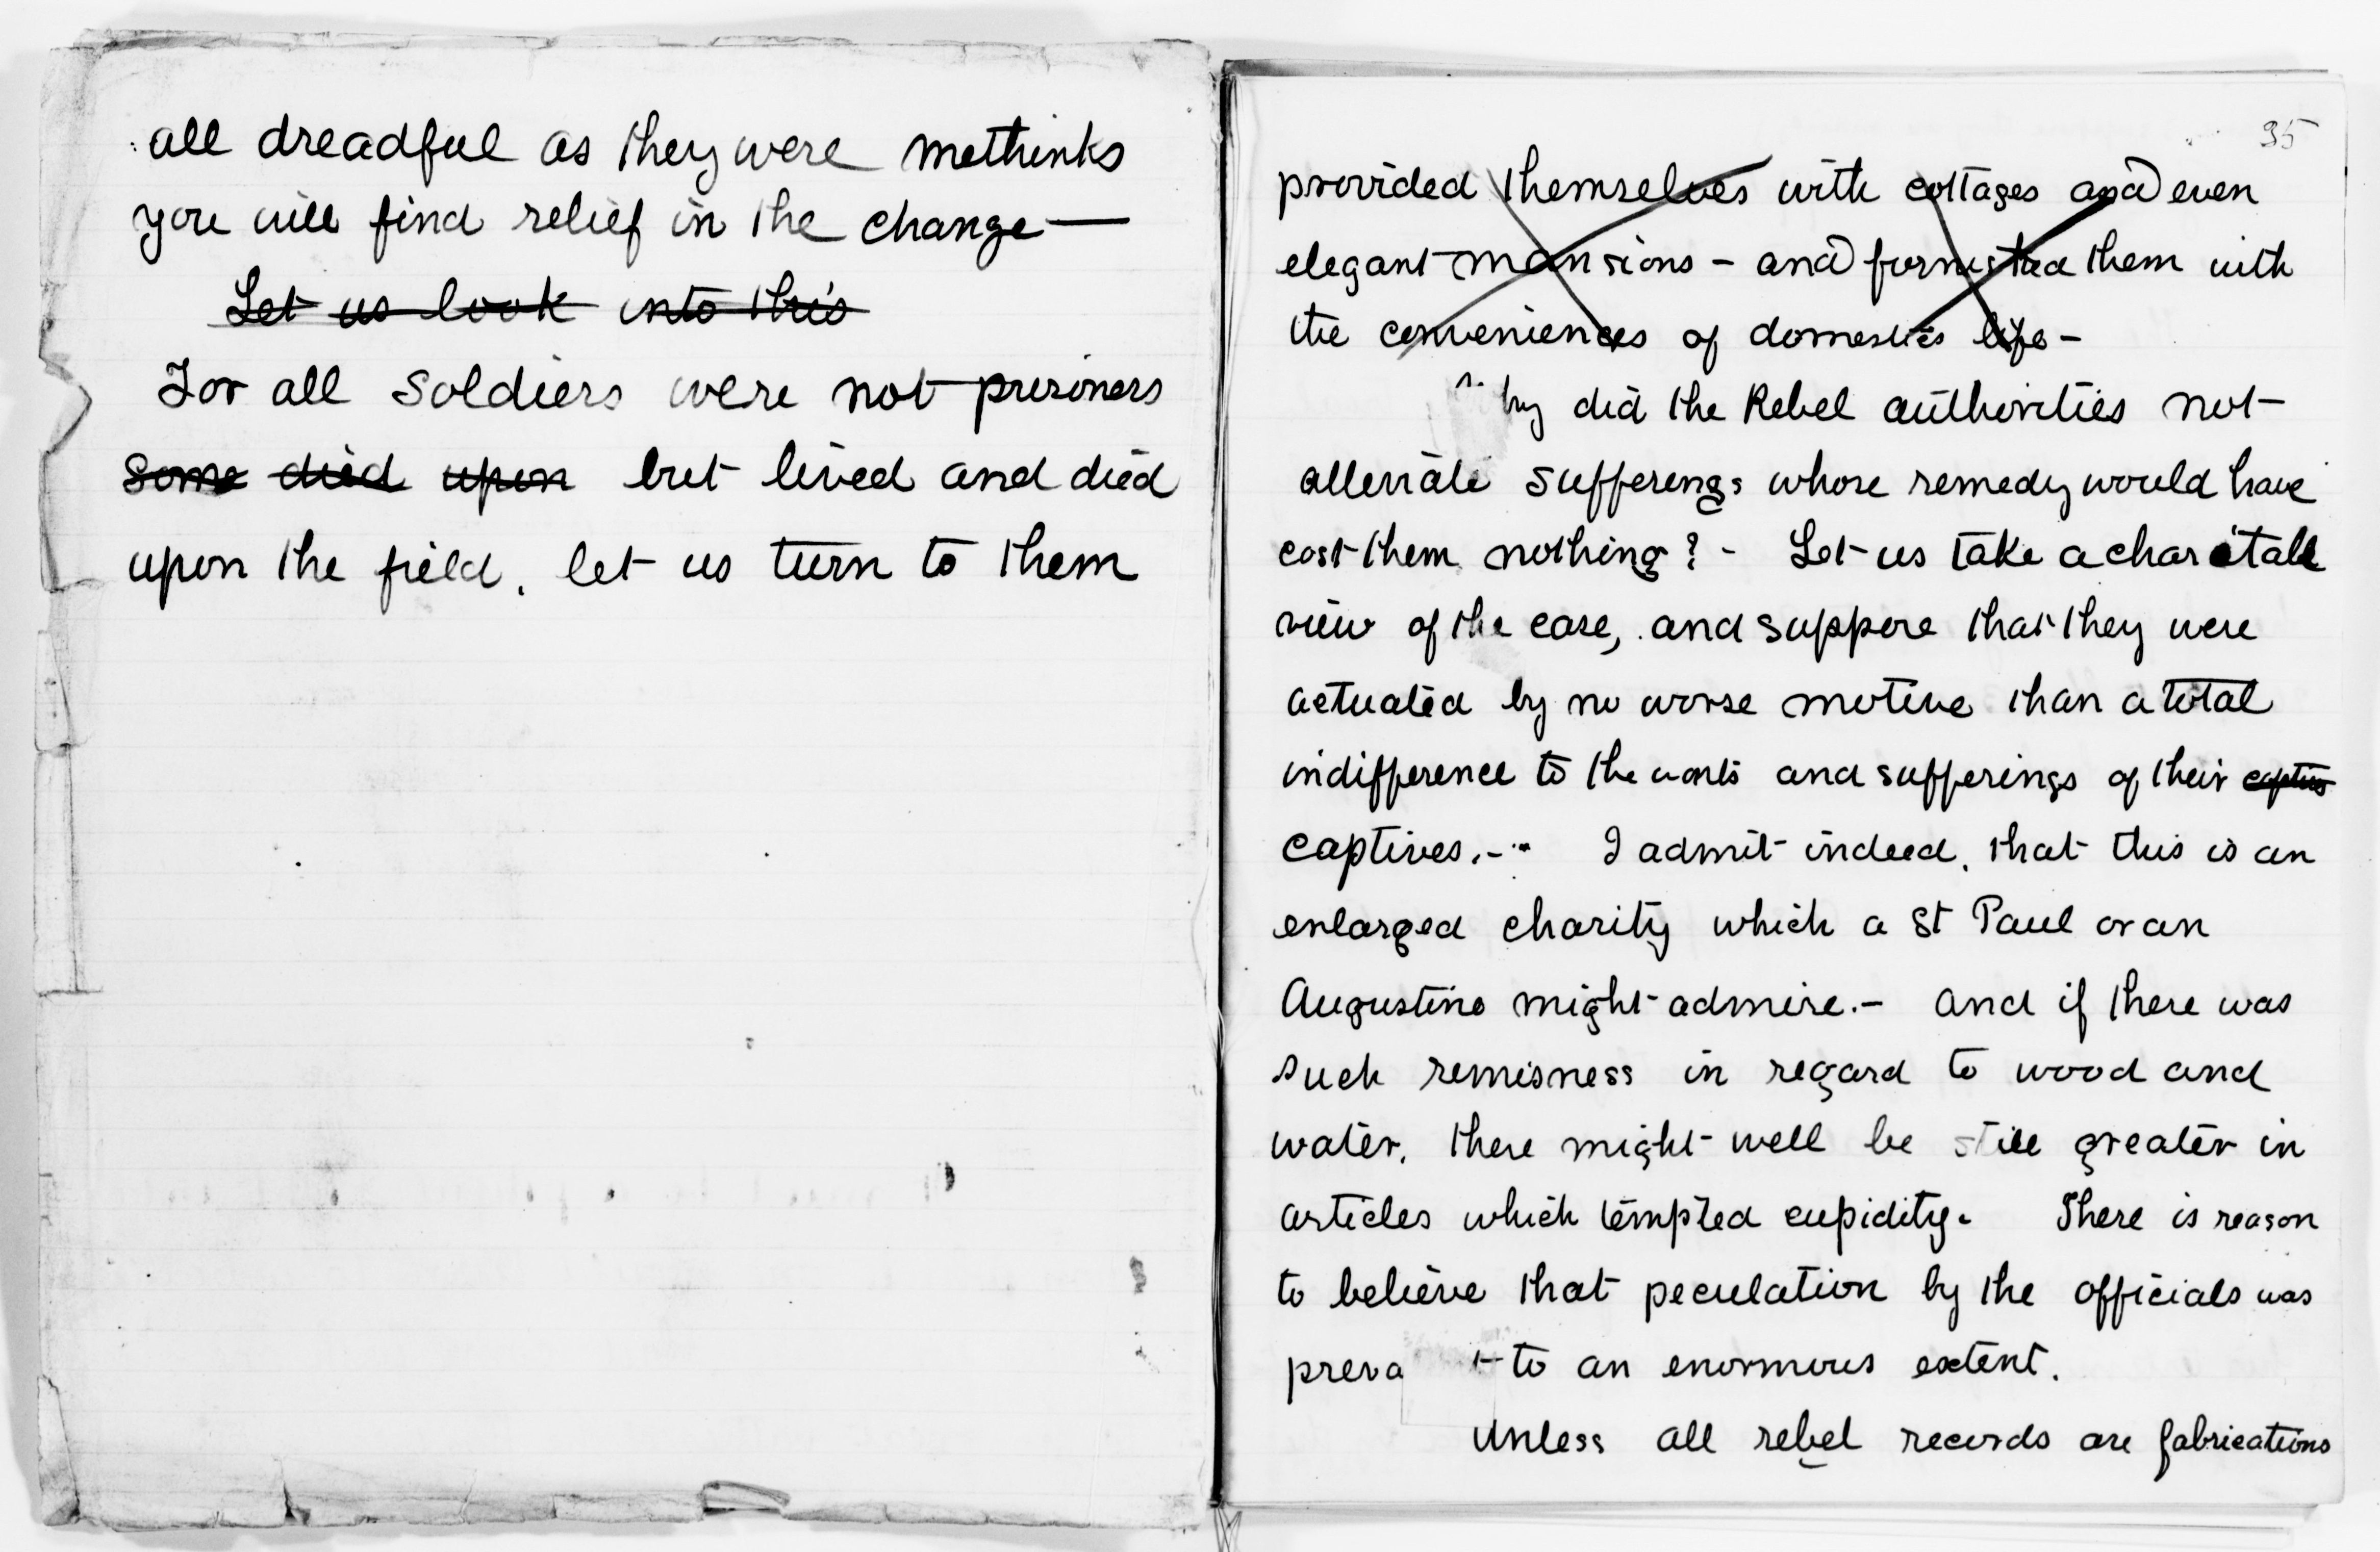 all dreadful as they were methinks
you will find relief in the change —
Let us look into this
For all soldiers were not prisoners
some died upon but lived and died
upon the field, let us turn to them
35
provided themselves with cottages and even
elegant mansions - and furnished them with
the conveniences of domestic life -
did the Rebel authorities not
alleviate sufferings whose remedy would have
cost them nothing? - Let us take a charitable
view of the case, and suppose that they were
actuated by no worse motive than a total
indifference to the wants and sufferings of their captives
captives. - I admit indeed, that this is an
enlarged charity which a St Paul or an
Augustine might admire. - and if there was
such remisness in regard to wood and
water, there might well be still greater in
articles which tempted cupidity. There is reason
to believe that peculation by the officials was
to an enormous extent.
Unless all rebel records are fabrications